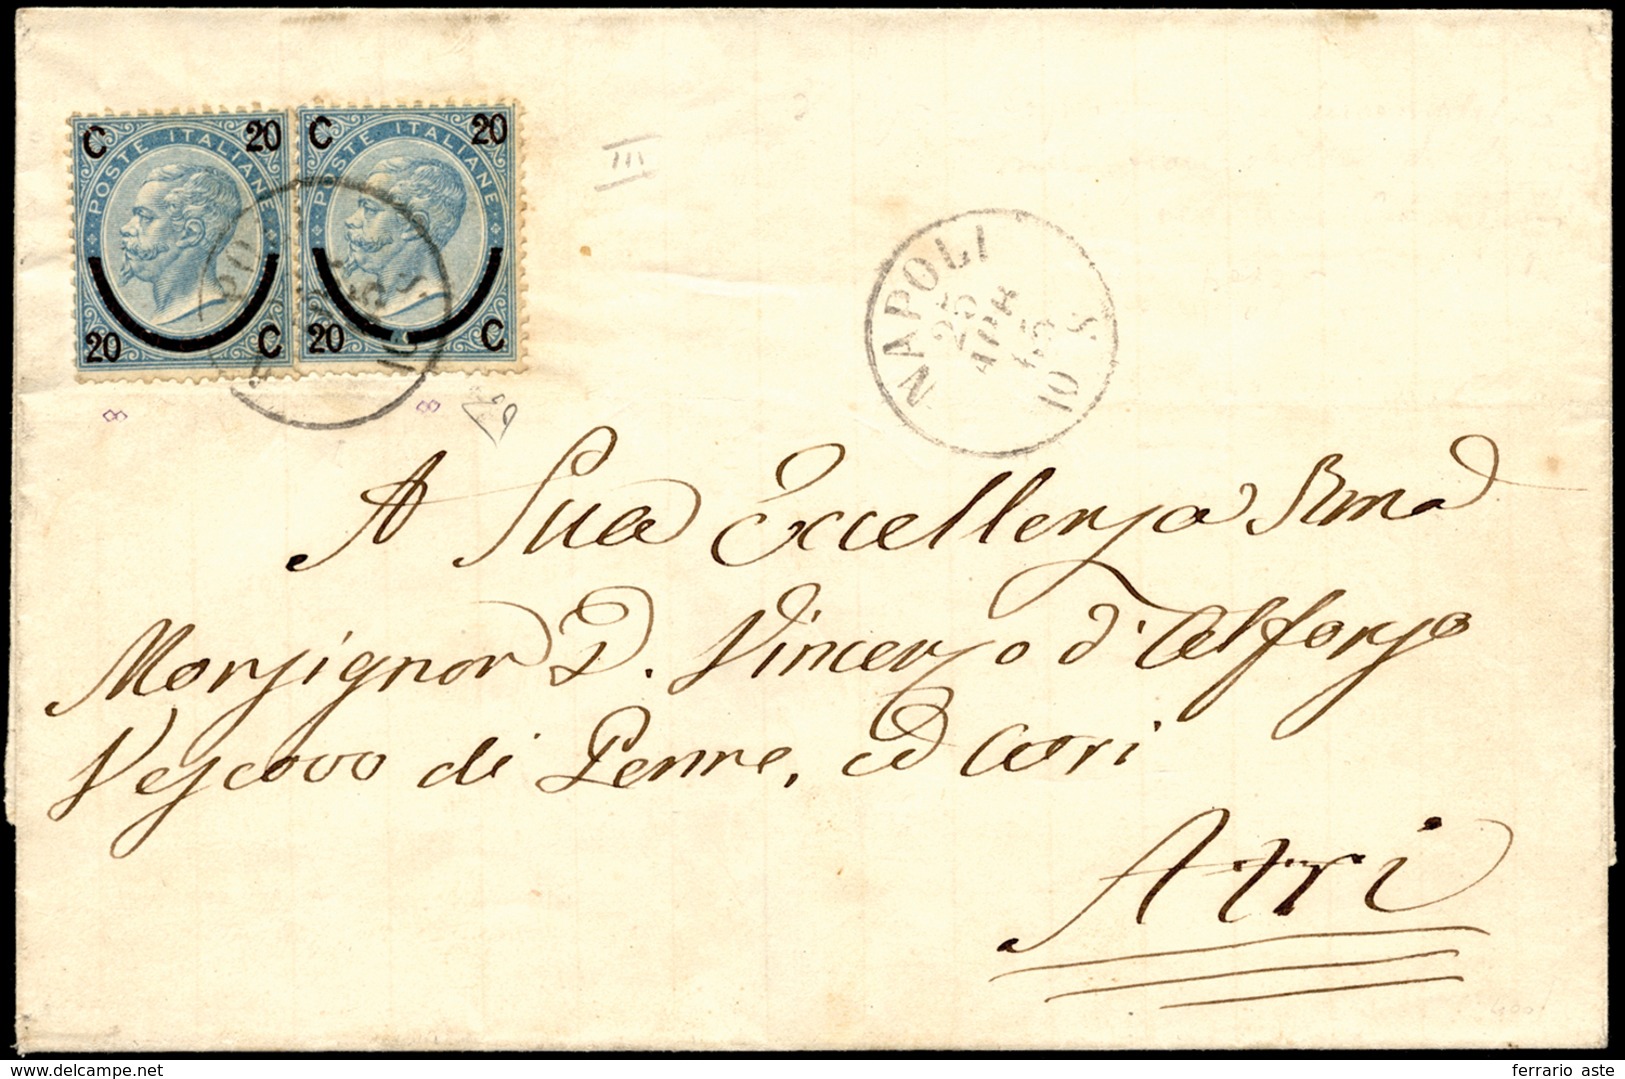 C 20
POSTE ITALIANE
20 C
C 20
POSTE ITALIANE
20 C
III
NAPOLI
25
APR
65
10 S
8
8
A Sua Eccellenza Rma
Monsignor D. Vincenzo d'Alfonzo
Vescovo di Penne, ed Atri
Atri
400
delcampe.net
ferrario aste